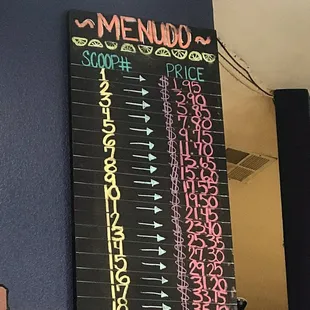 ~MENUDO~
SCOOP# PRICE
1 → $1.95
2 → $3.90
3 → $5.85
4 → $7.80
5 → $9.75
6 → $11.70
7 → $13.65
8 → $15.60
9 → $17.55
10 → $19.50
11 → $21.45
12 → $23.40
13 → $25.35
14 → $27.30
15 → $29.25
16 → $31.20
17 → $33.15
18 →